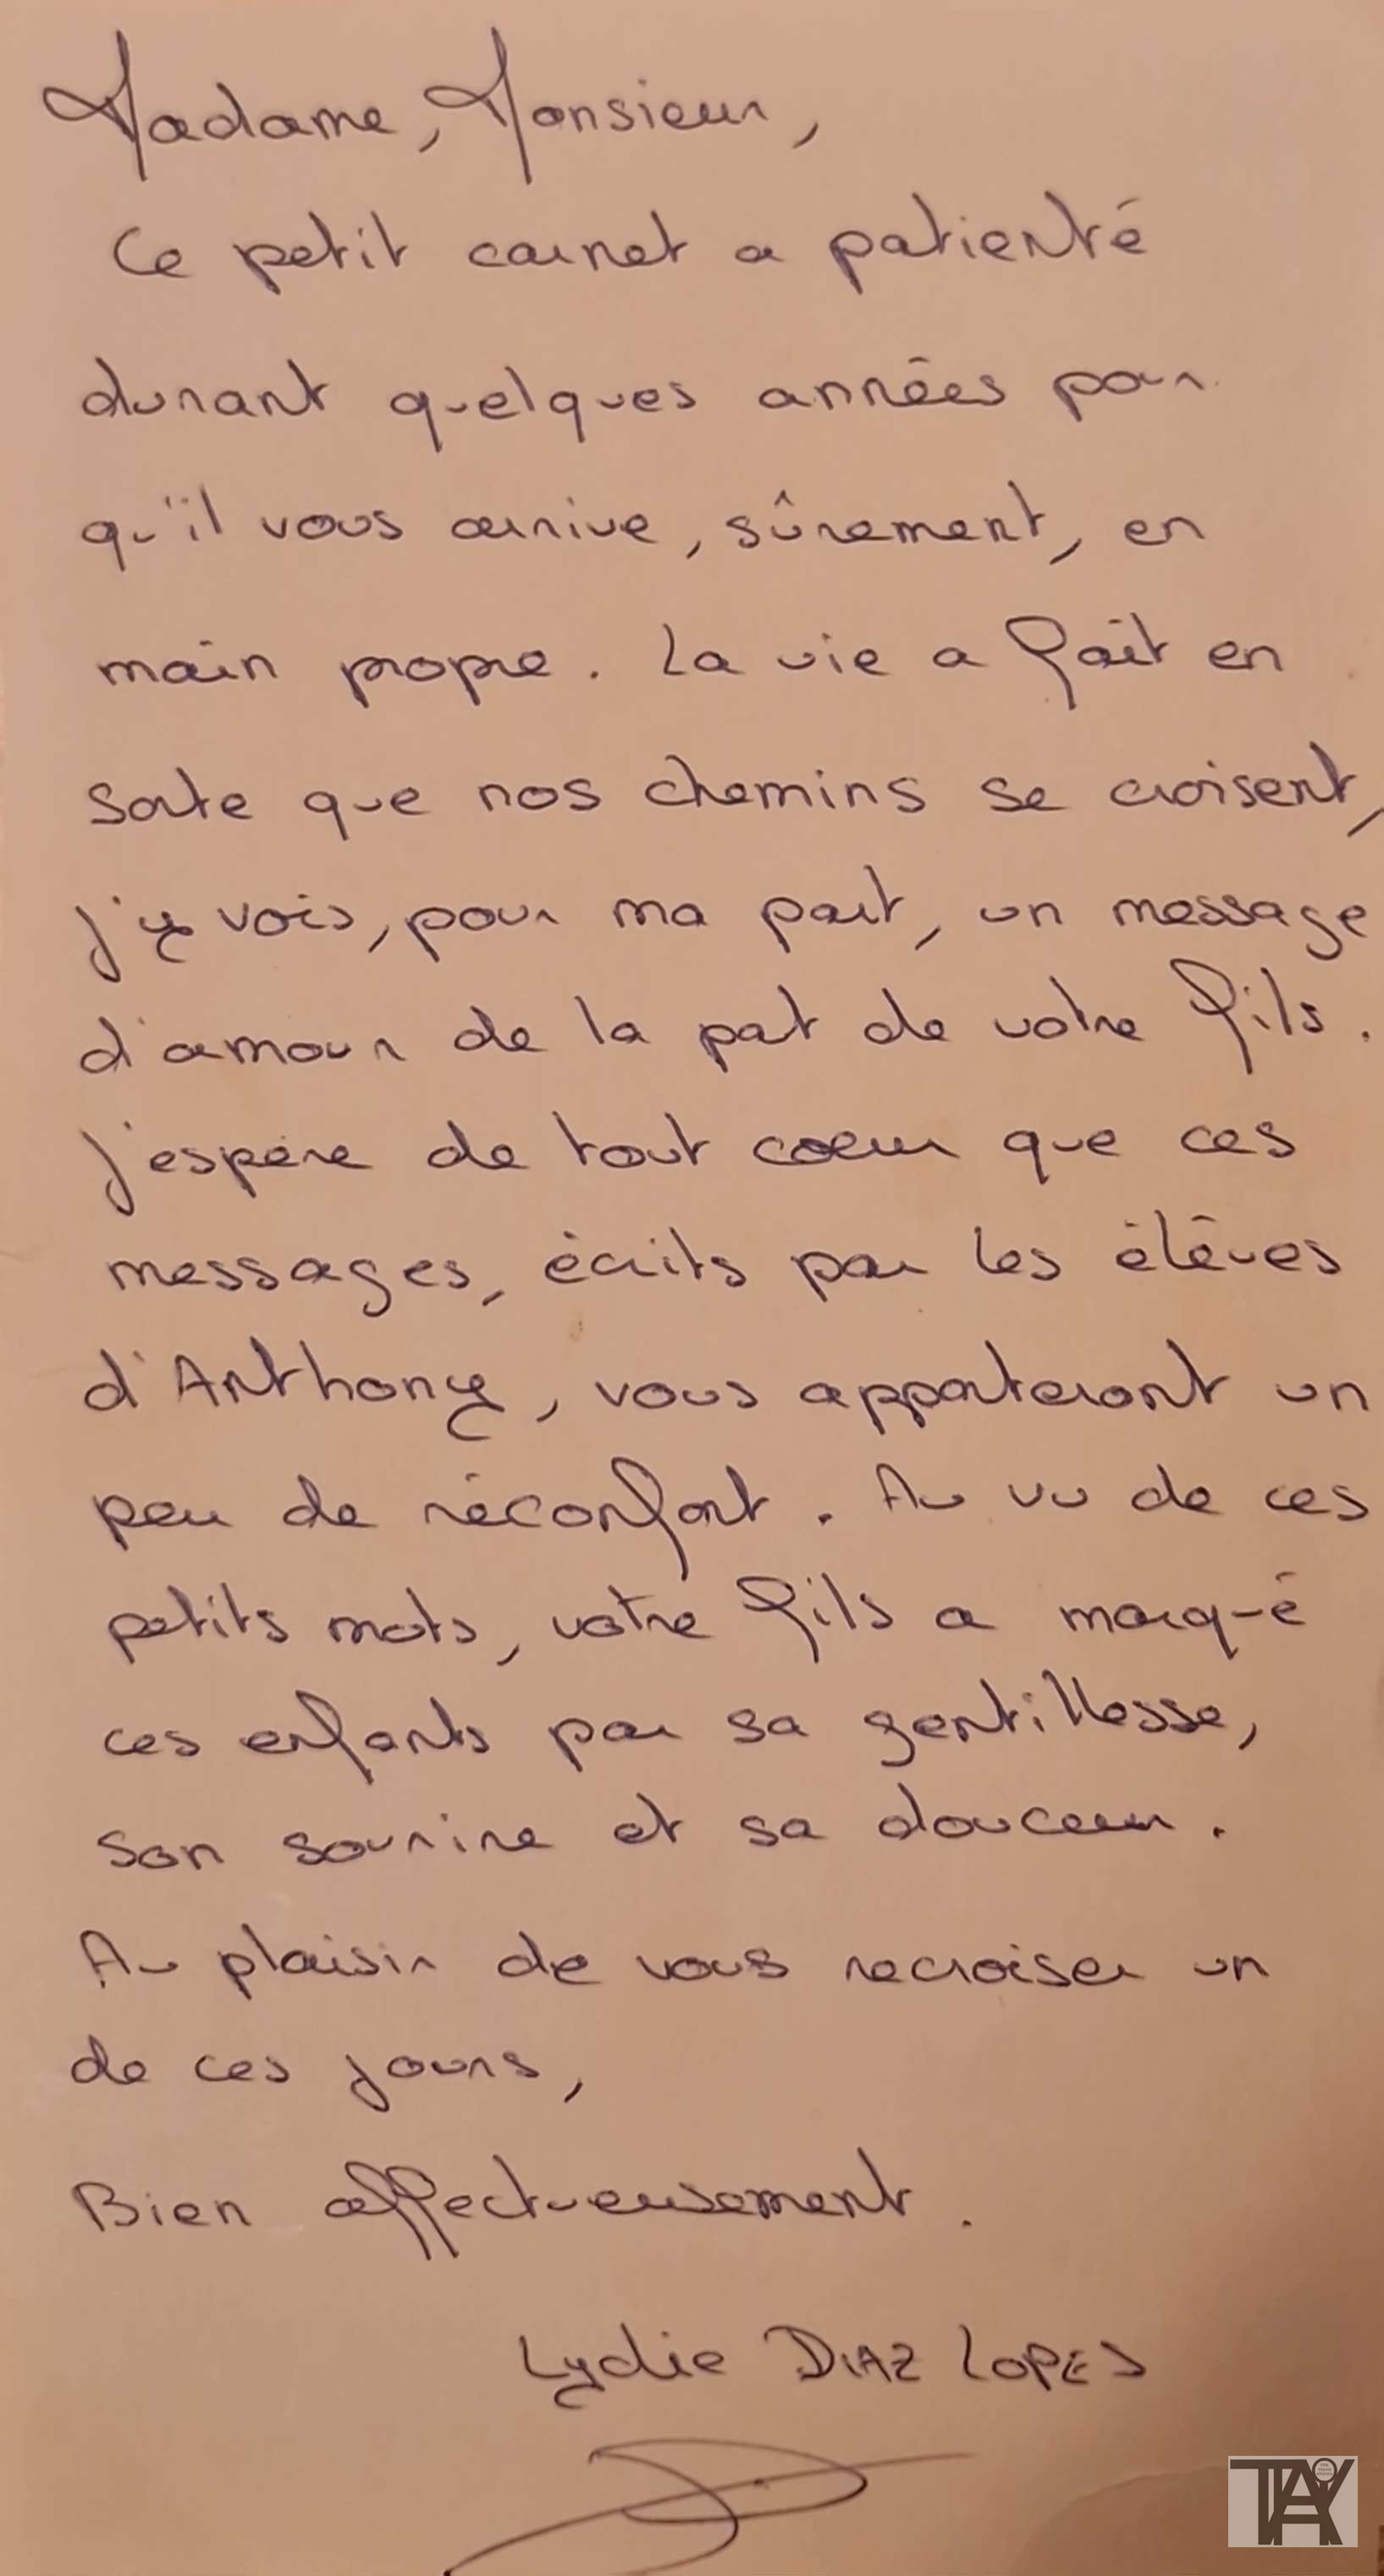 Madame, Monsieur,
Ce petit carnet a patienté
durant quelques années pour
qu'il vous arrive, sûrement, en
main propre. La vie a fait en
sorte que nos chemins se croisent,
j'y vois, pour ma part, un message
d'amour de la part de votre fils.
J'espère de tout coeur que ces
messages, écrits par les élèves
d'Anthony, vous apporteront un
peu de réconfort. Au vu de ces
petits mots, votre fils a marqué
ces enfants par sa gentillesse,
son sourire et sa douceur.
Au plaisir de vous recroiser un
de ces jours,
Bien affectueusement.
Lydie DIAZ LOPES
TAY